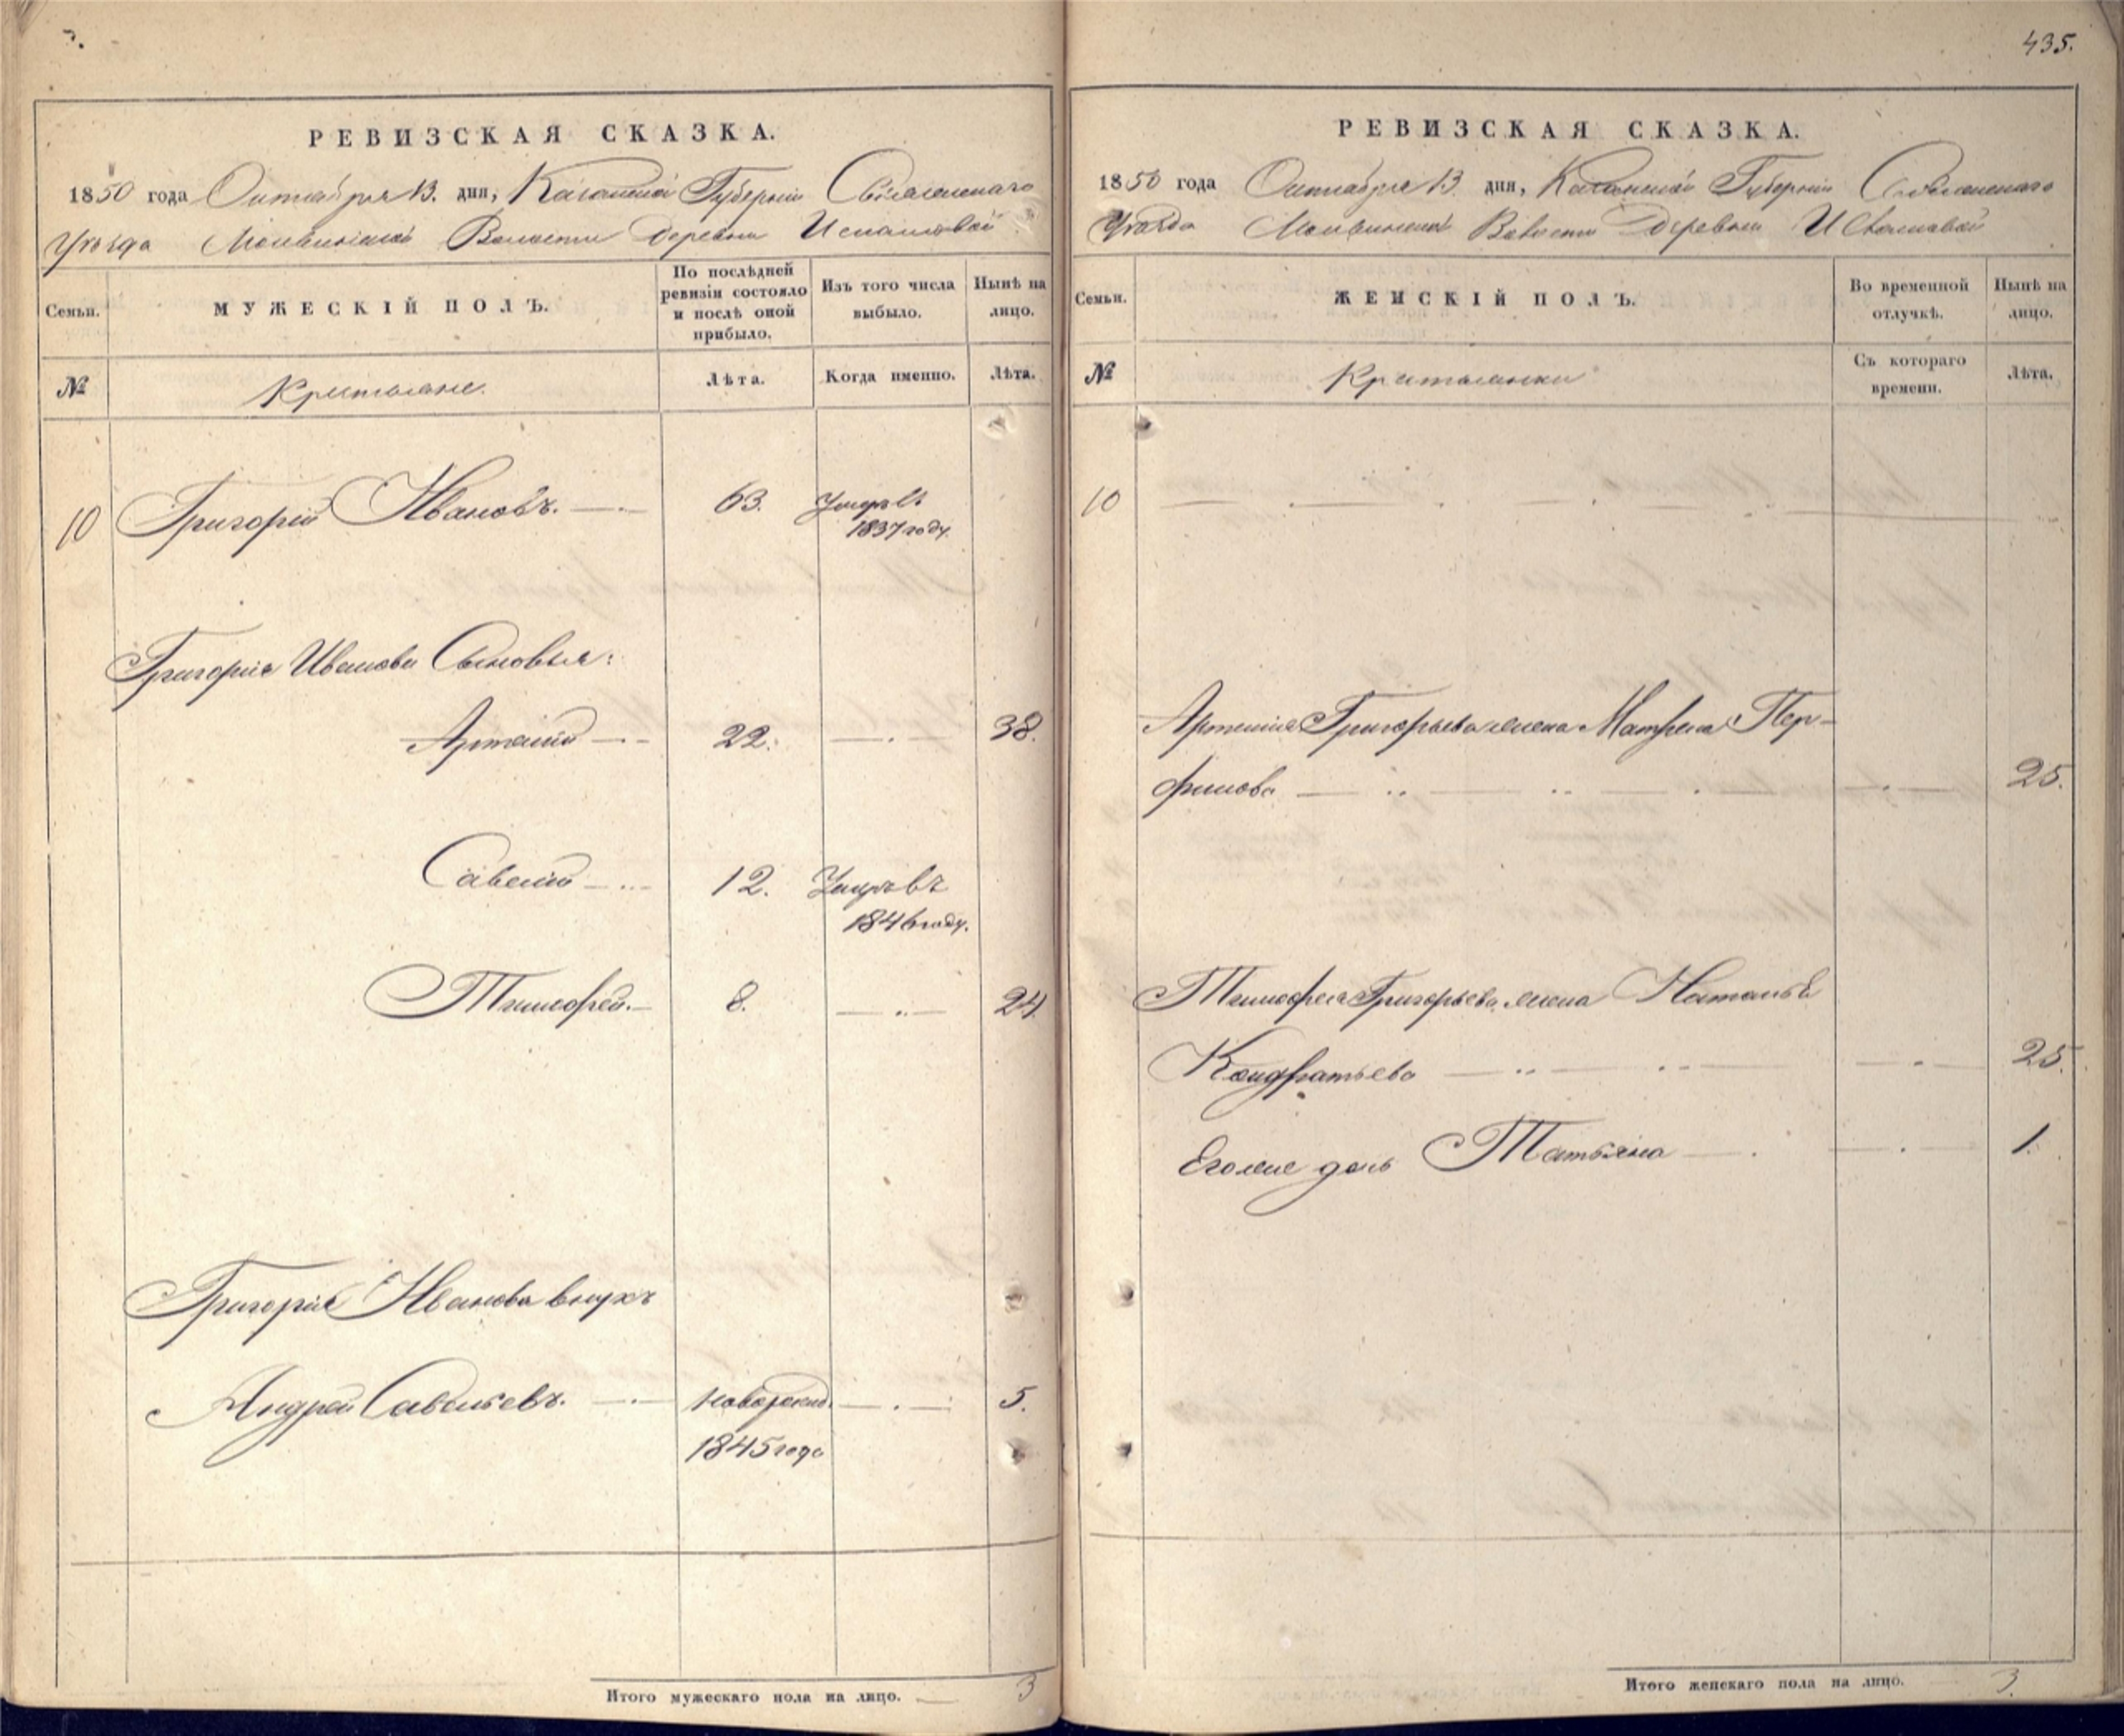 435.
РЕВИЗСКАЯ СКАЗКА.
1850 года Октября 13. дня, Казанской Губернiи Свiяжскаго
Уѣзда Волости Деревни
Семьи.
МУЖЕСКIЙ ПОЛЪ.
По послѣдней
ревизiи состояло
и послѣ оной
прибыло.
Изъ того числа
выбыло.
Нынѣ на
лицо.
№
Крестьяне.
Лѣта.
Когда именно.
Лѣта.
10 Григорiй Ивановъ. 63. Умеръ въ
1837 году.
Григорiя Иванова Сыновья:
Артемiй 22. 38.
Савелiй 12. Умеръ въ
1846 году.
Тимофей. 8. 24.
Григорiя Иванова внукъ
Андрей Савельевъ. новорожд. 5.
1845 года
Итого мужескаго пола на лицо. 3
РЕВИЗСКАЯ СКАЗКА.
1850 года Октября 13. дня, Казанской Губернiи
Уѣзда Волости Деревни
Семьи.
ЖЕНСКIЙ ПОЛЪ.
Во временной
отлучкѣ.
Нынѣ на
лицо.
№
Крестьянки
Съ котораго
времени.
Лѣта.
10
Артемiя Григорьева жена Матрена Пер-
филова 25.
Тимофея Григорьева жена Наталья
Кондратьева 25.
Его же дочь Татьяна 1.
Итого женскаго пола на лицо. 3.